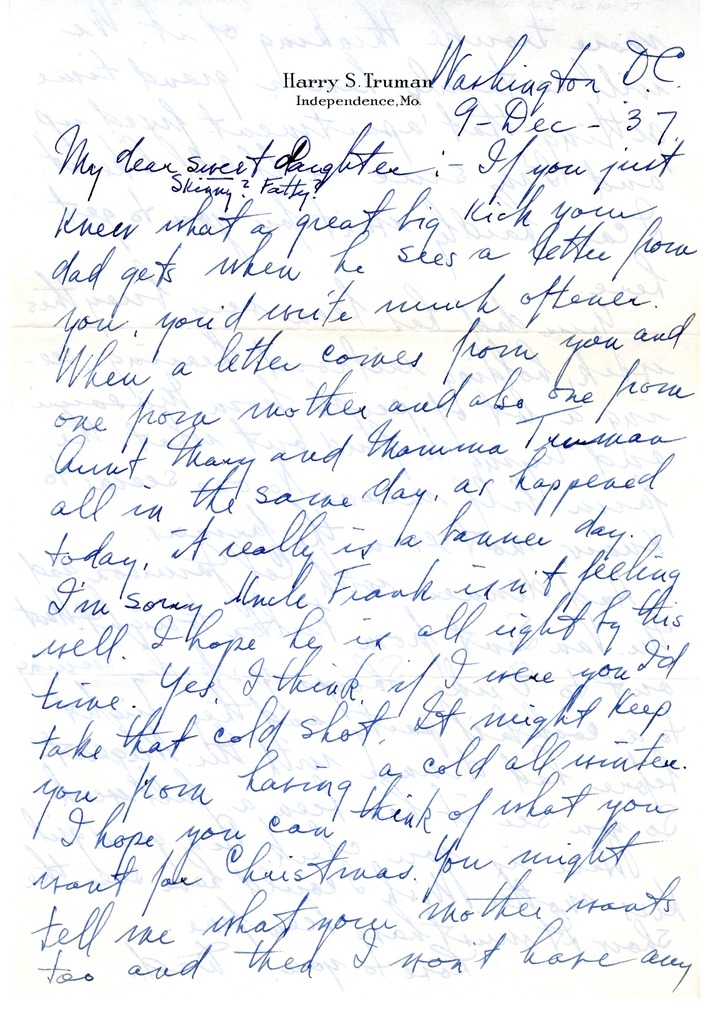 Harry S. Truman
Independence, Mo.
Washington D.C.
9-Dec-37.
My dear sweet daughter:- If you just
Skinny? Fatty?
knew what a great big kick your
dad gets when he sees a letter from
you, you'd write much oftener.
When a letter comes from you and
one from mother and also one from
Aunt Mary and Mamma Truman
all in the same day, as happened
today, it really is a banner day.
I'm sorry Uncle Frank isn't feeling
well. I hope he is all right by this
time. Yes, I think if I were you I'd
take that cold shot. It might keep
you from having a cold all winter.
I hope you can think of what you
want for Christmas. You might
tell me what your mother wants
too and then I won't have any